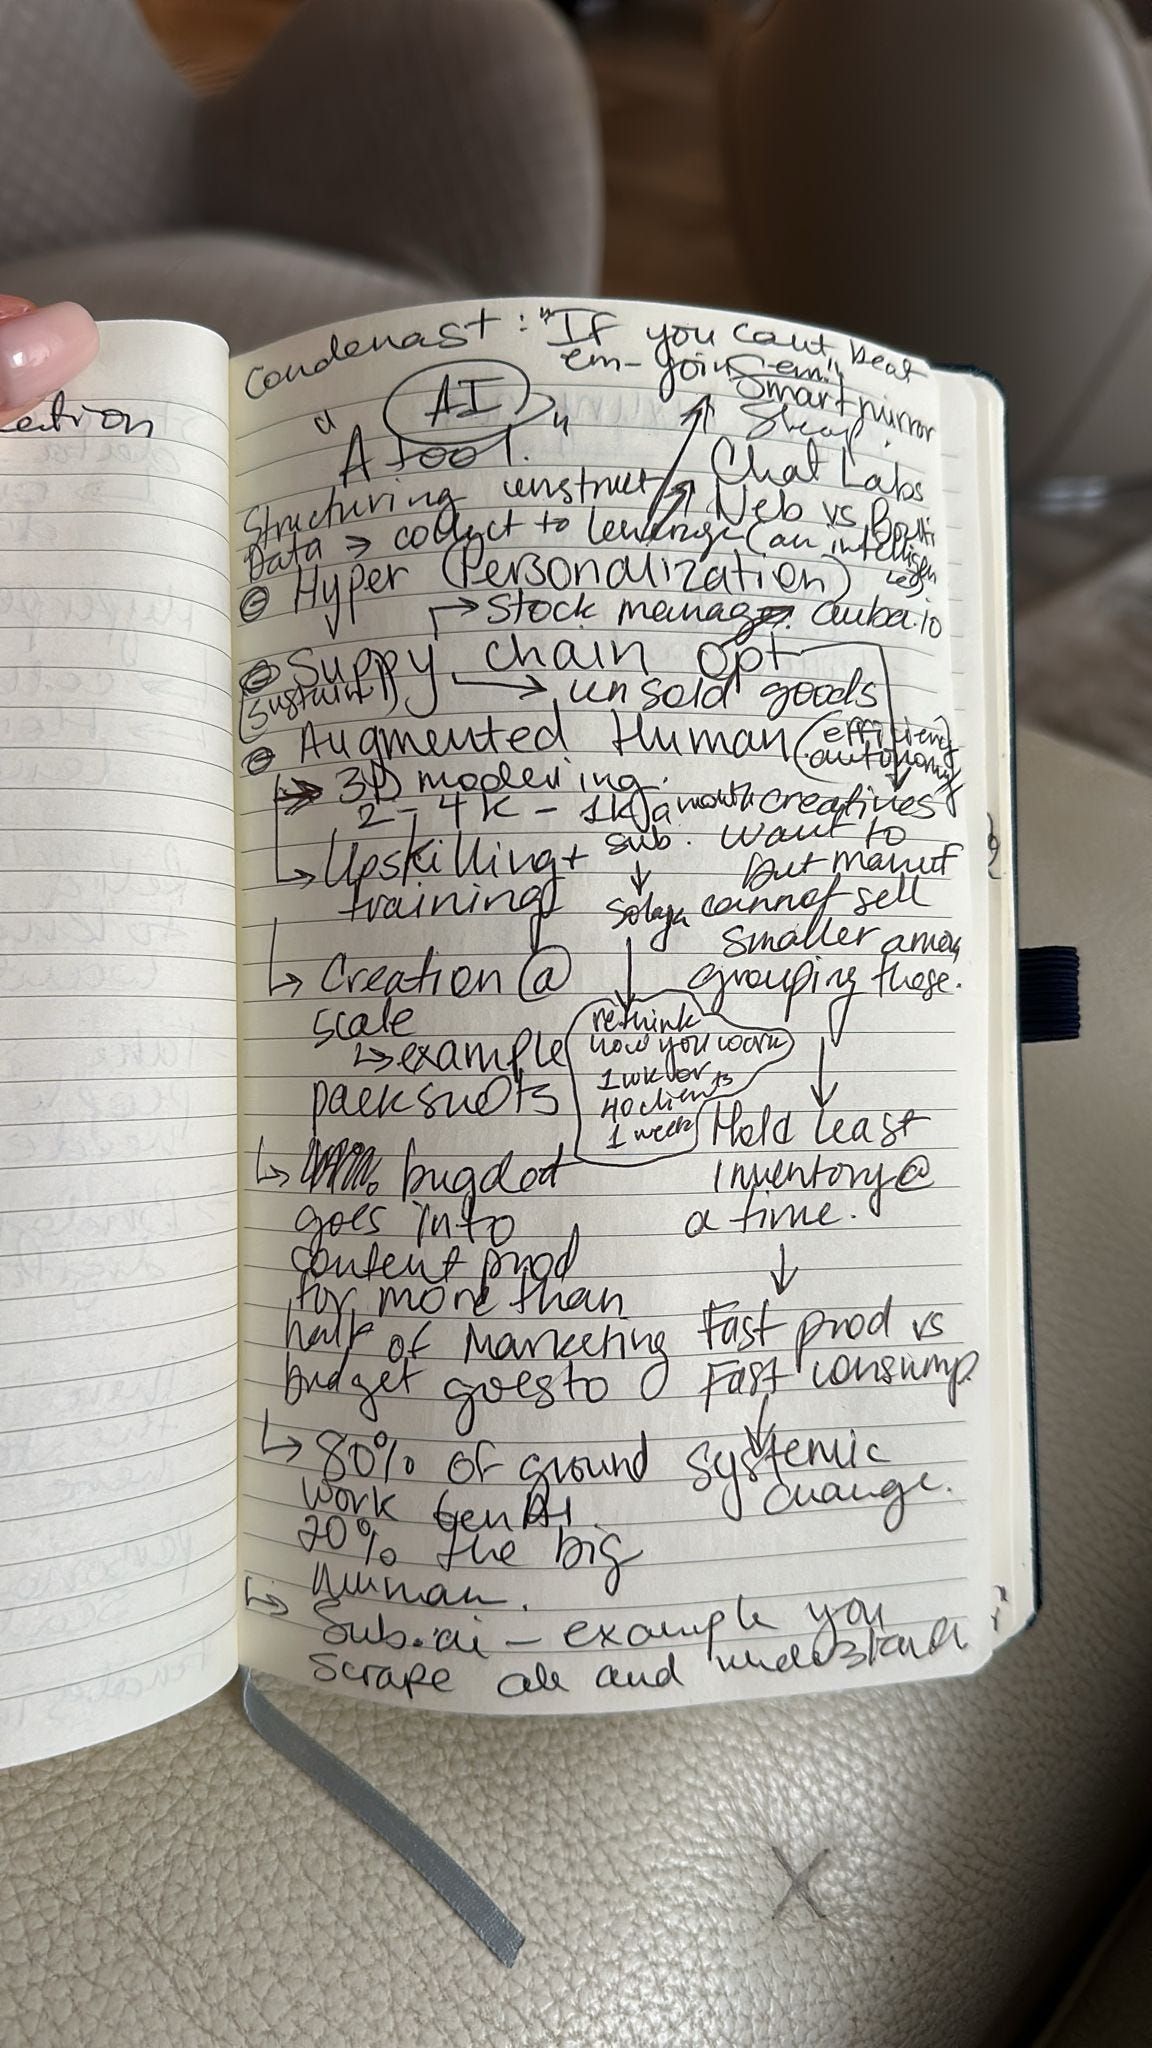 eation
Condenast : "If you cant beat
em - yoin em"
AI
"A tool."
Smart mirror
Shop.
Chat Labs
Web vs Bouti
Structuring unstruct
Data → collect to leverage (an intelligen
Hyper (Personalization)
→ Stock manag.
Suppy chain opt
(sustain)
→ unsold goods
Augmented Human (efficiency
autonomy
→ 3D modeling.
2 - 4k - 1k a month
sub.
→ Upskilling +
training
→ Creation @
scale
→ example
packshots
→ bugdet
goes into
content prod
for more than
half of Marketing
budget goes to
→ 80% of ground
work GenAI
20% the big
human.
→ Sub.ai - example you
scrape all and understand
rethink
how you work
1 wk or
40 clients
1 week
creatives
want to
but manuf
cannot sell
smaller amou
grouping these.
Hold least
inventory @
a time.
Fast prod vs
Fast consump.
systemic
change.